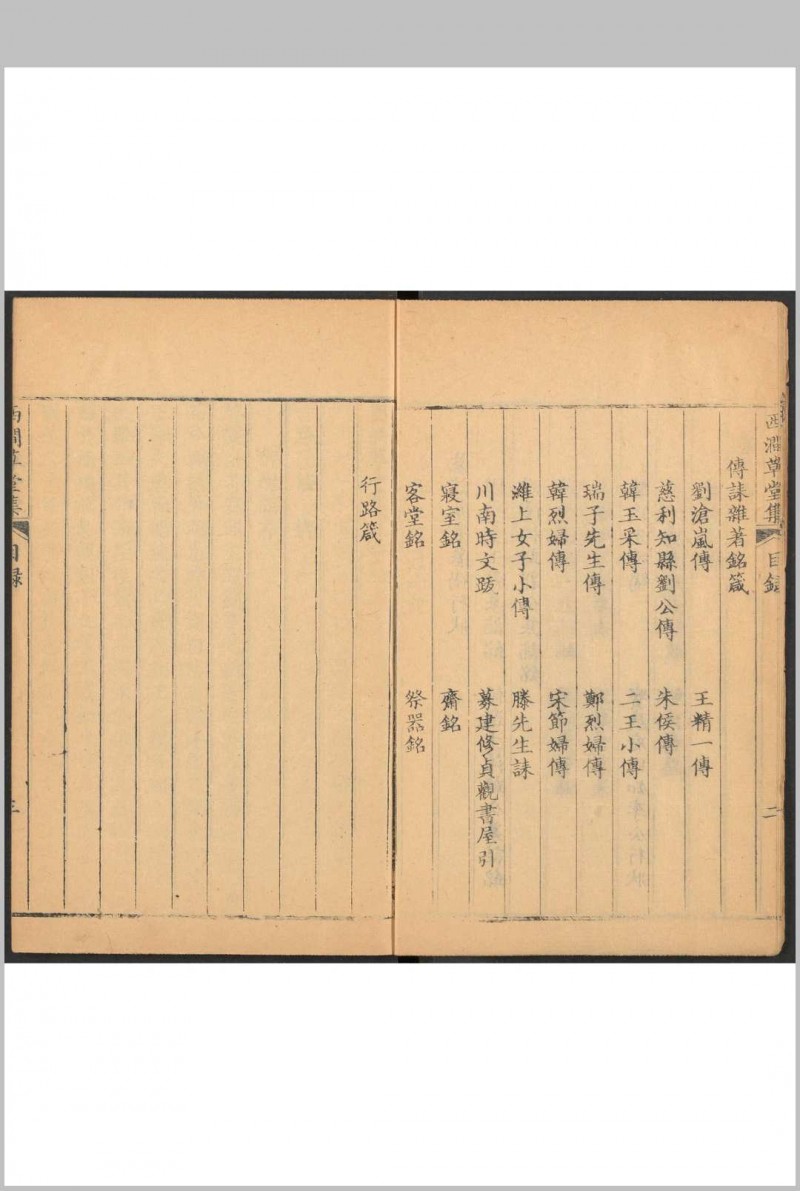 西澗草堂集 目錄 二
傳誄雜著銘箴
劉滄嵐傳 王精一傳
慈利知縣劉公傳 朱侯傳
韓玉采傳 二王小傳
瑞子先生傳 鄭烈婦傳
韓烈婦傳 宋節婦傳
濰上女子小傳 滕先生誄
川南時文跋 募建修貞觀書屋引
寢室銘 齋銘
客堂銘 祭器銘
行路箴
西澗草堂集 目錄 三